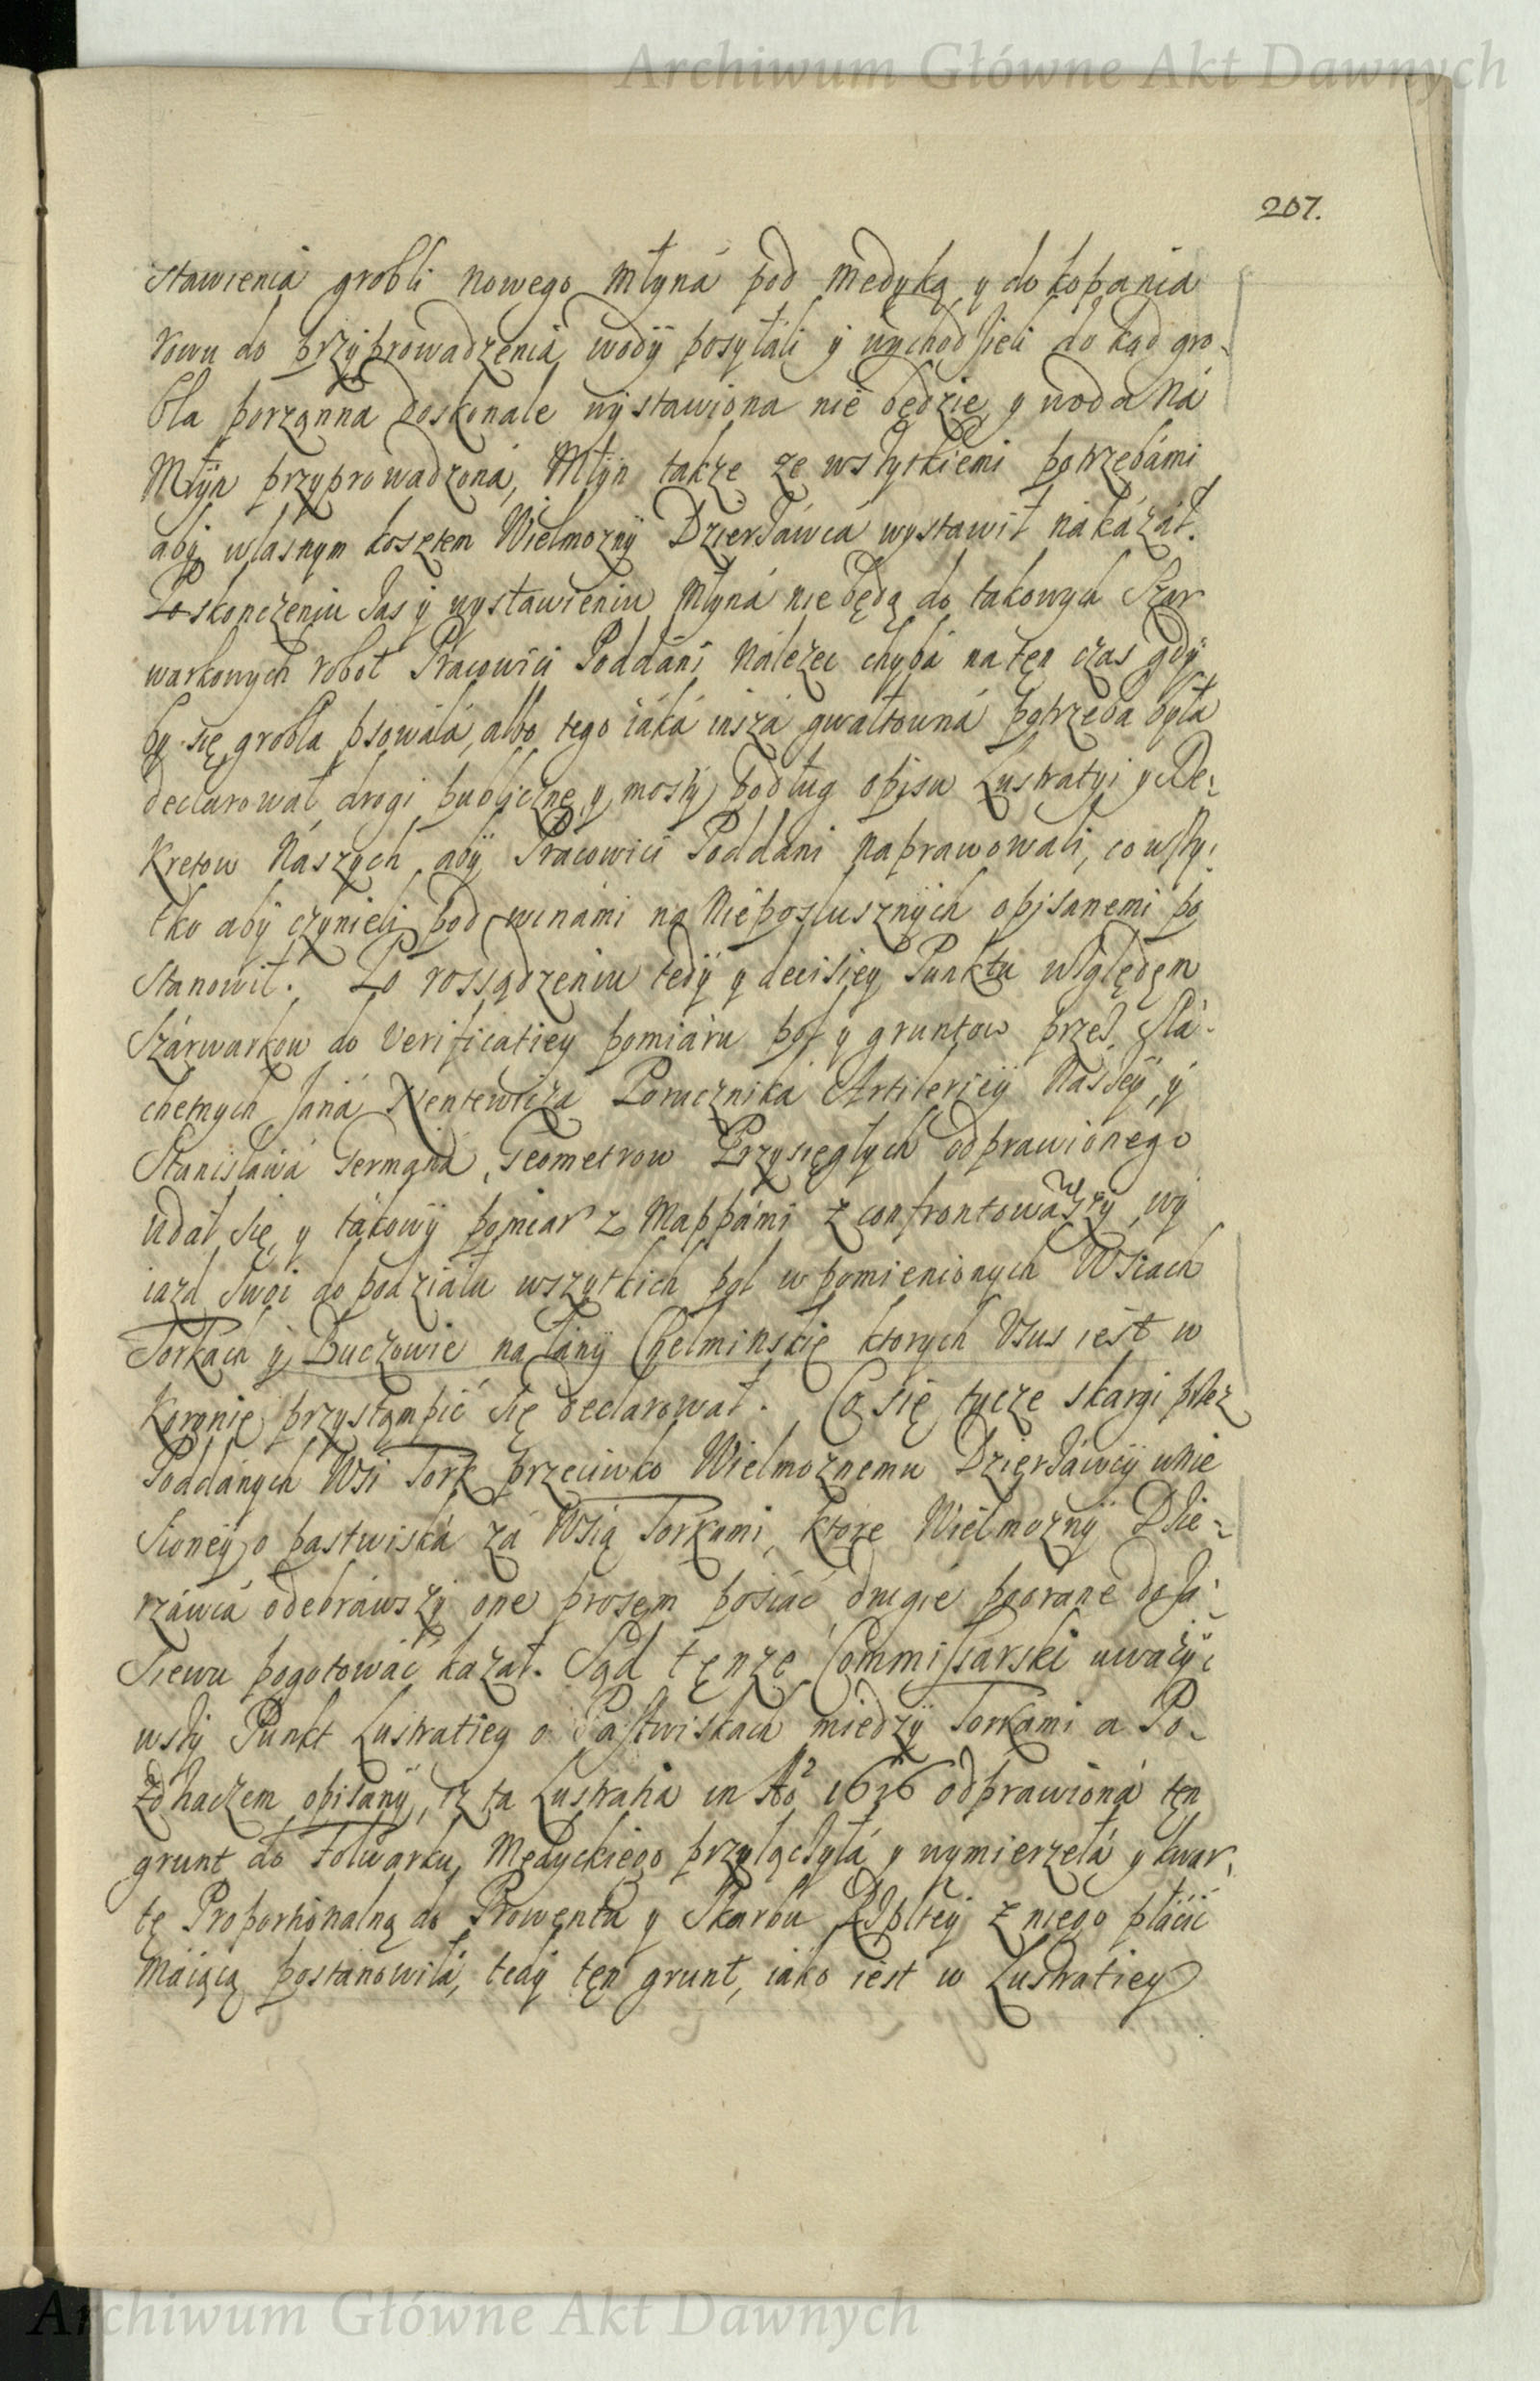 Archiwum Główne Akt Dawnych
207.
stawienia grobli nowego Młyná pod Medyką y do kopania
rowu do przyprowadzeniá wodÿ posyłáli ÿ wychodzieli do kąd gro-
bla porządna doskonale wÿstawiona nie będzie y woda ná
Młÿn przyprowadzoná, Młÿn także ze wszytkiemi potrzebámi
abÿ własnym kosztem Wielmoznÿ Dzierzáwcá wystawił nákázáł.
Po skonczeniu zas ÿ wystawieniu Młyná nie będą do takowych Szar
warkowych robot Pracowici Poddáni nálezec chybá na ten czas gdÿ
by się grobla psowáłá, albo tego iáká inszá gwałtowná potrzeba była
declarował, drogi publiczne y mostÿ podług opisu Lustratyi y De-
kretow Nászych, abÿ Pracowici Poddáni naprawowali, co wszy-
tko abÿ czynieli pod winámi na Nieposłusznÿch opisanemi po
stanowił. Po rossądzeniu tedÿ y decisiey Punktu względem
Szárwarkow do verificatiey pomiáru pol ÿ gruntow przez Szla-
chetnych Janá Poruczniká Artileriey Nászeÿ, ÿ
Stanisławá Germaná, Geometrow Przysięgłych odprawionego
udał się y tákowÿ pomiar z Mappámi zconfrontowawszy, wy
iazd swoi do podziału wszytkich pol w pomienionych Wsiach
Torkách ÿ Buczowie na łanÿ Chełminskie ktorych Usus iest w
Koronie przystąmpić się declarował. Co się tycze skargi przez
Poddánych Wsi Tork przeciwko Wielmoznemu Dzierzáwcÿ wnie
sioneÿ o pastwiská zá Wsią Torkami, ktore Wielmoznÿ Dzie-
rzáwcá odebráwszÿ one prosem posiáć drugie poorane do za-
siewu pogotowáć kazał. Sąd tęnze Commissarski uwazÿ-
wszÿ Punkt Lustratiey o Pastwiskach międzÿ Torkami a Po-
zdhaczem opisanÿ, iz ta Lustratia in Ao 1626 odprawioná ten
grunt do folwarku Medyckiego przyłączyłá y wymierzełá y kwar-
tę Proportionalną do Prowentu y Skarbu Rzpltey z niego płácić
máiącą postánowiłá, tedÿ ten grunt, iáko iest w Lustratiey
Archiwum Główne Akt Dawnych